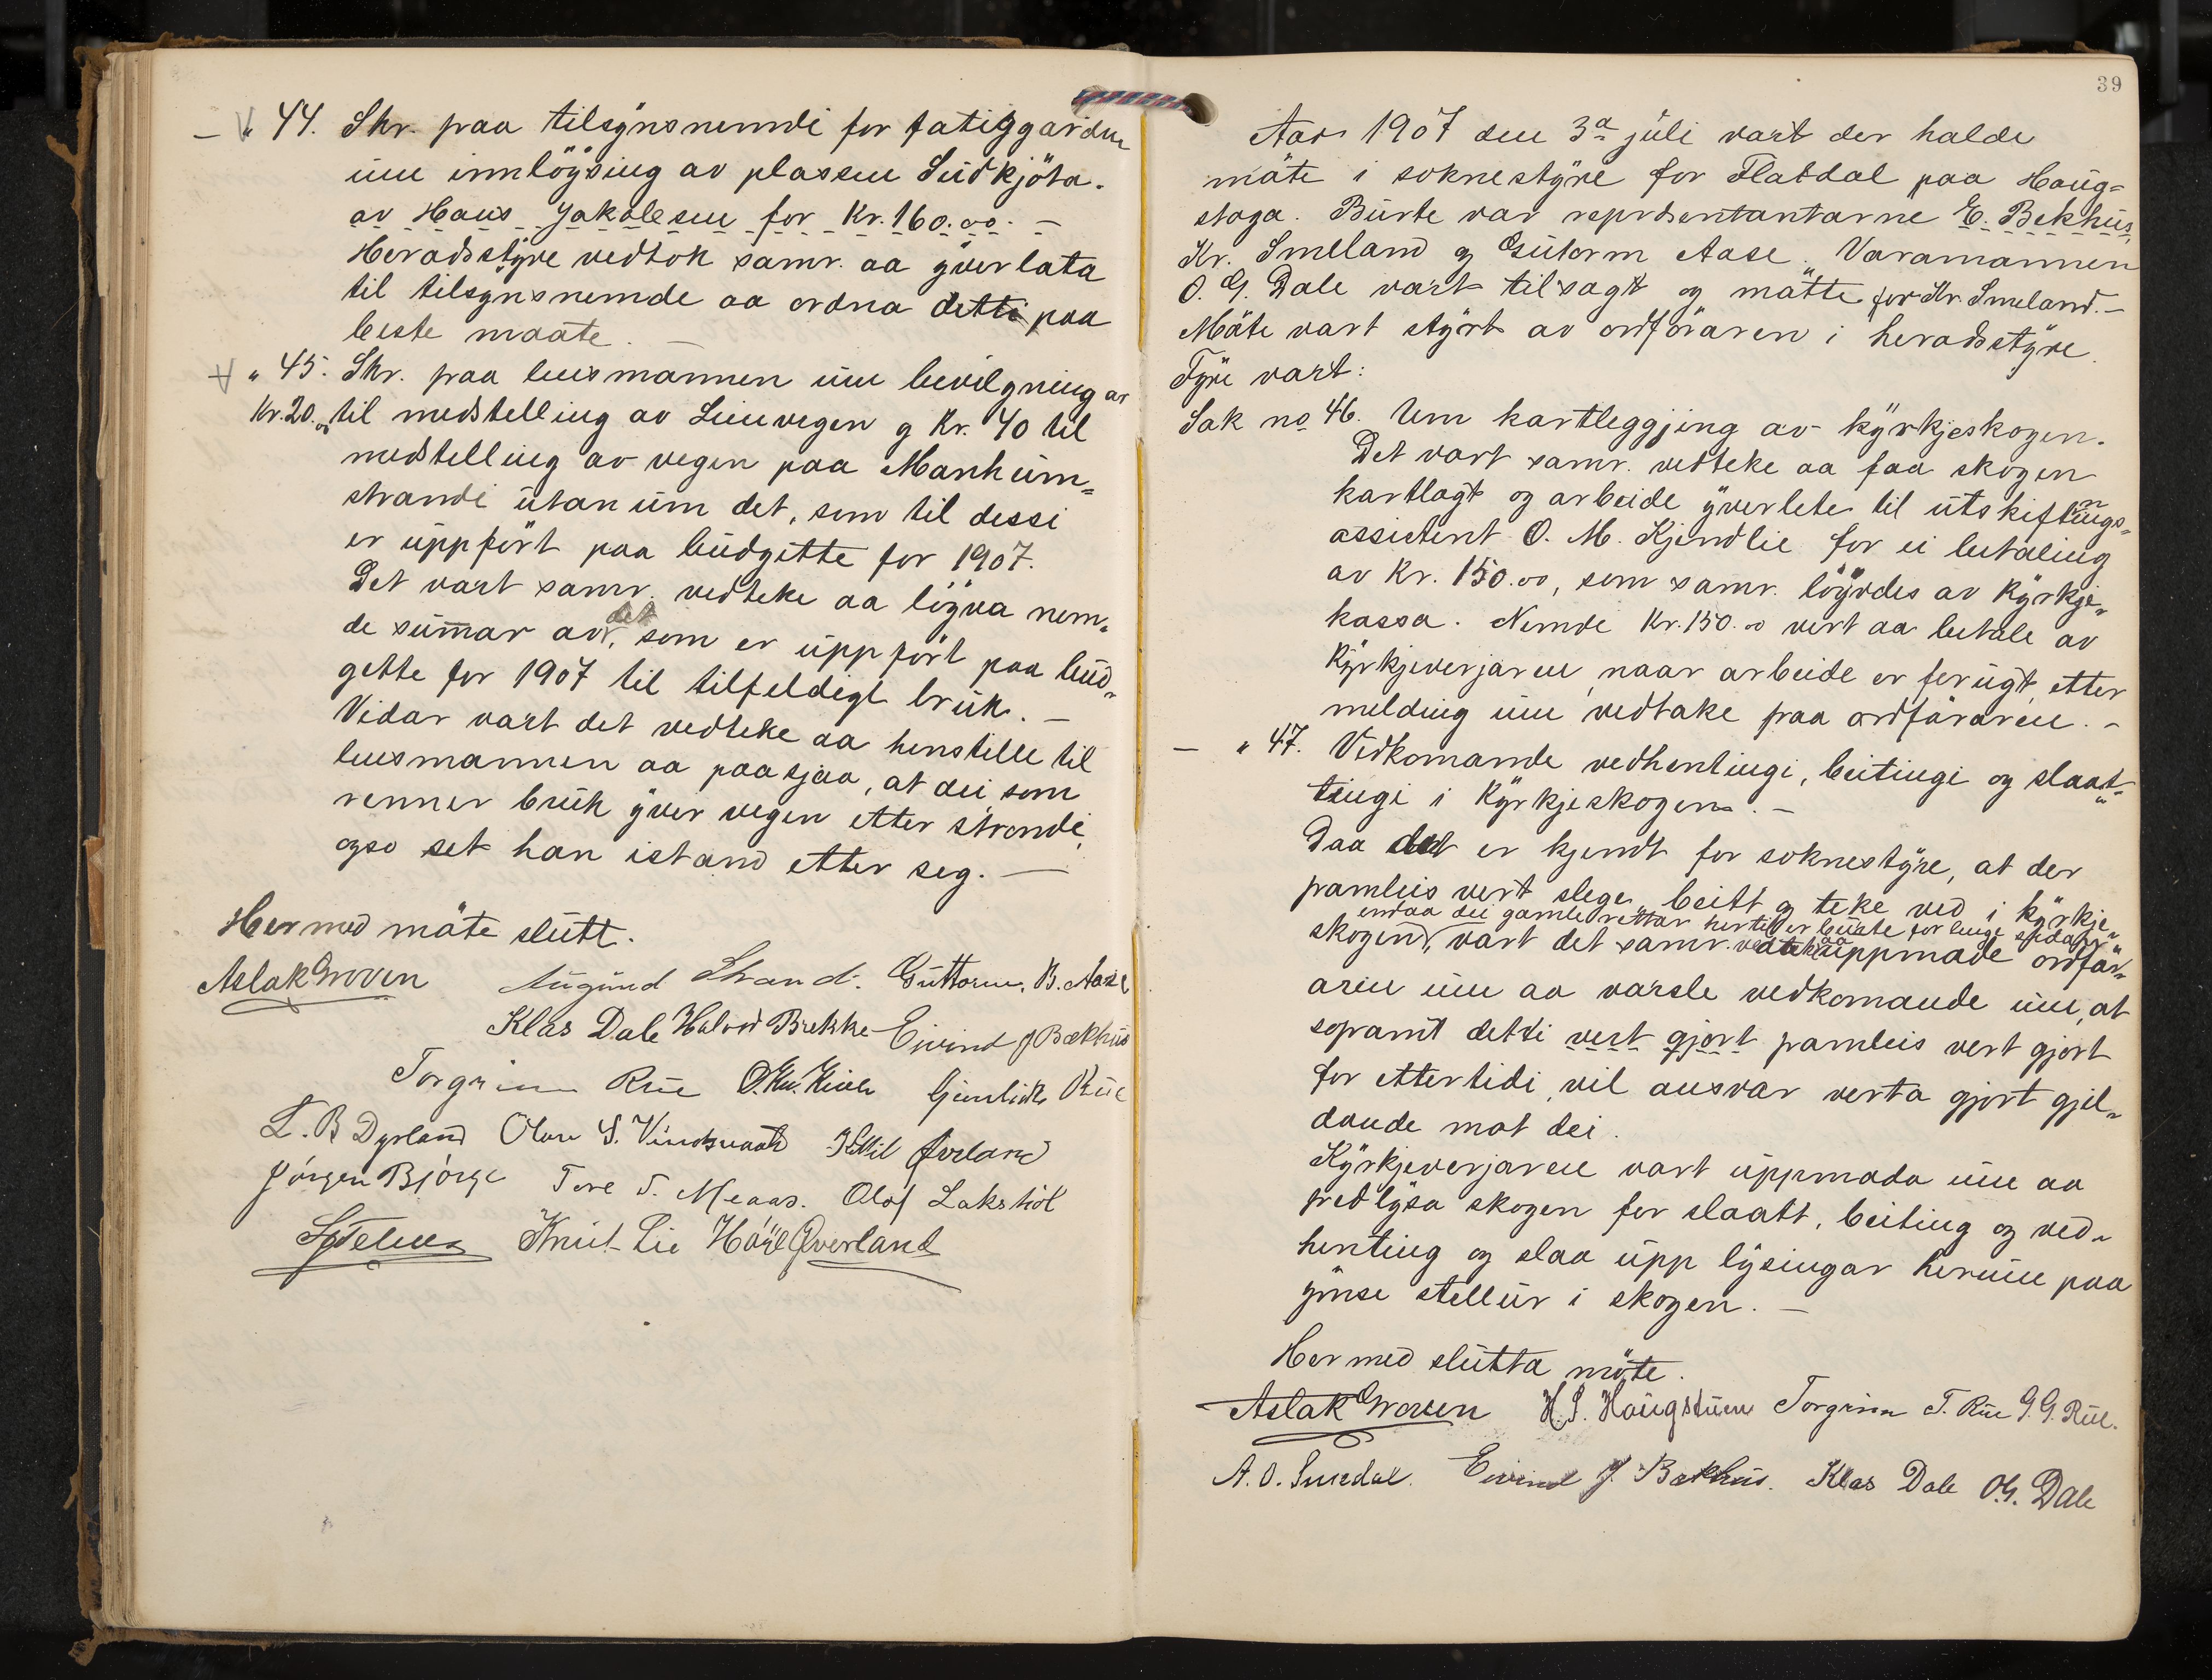 — " 44. Skr. paa tilsynsnemdi for fatiggarden
um innlöysing av plassen Sudkjöta.
av Hans Jakobsen for Kr. 160.00. —
Heradsstyre vedtok samr. aa yverlata
til tilsynsnemde aa ordna detti paa
beste maate. —
" 45. Skr. paa lensmannen um bevilgning av
Kr. 20.00 til medstelling av Lieuvegen og Kr. 40 til
medstelling av vegen paa Manheim=
strandi utanum det, som til dessi
er uppfört paa budgette for 1907.
Det vart samr. vedteke aa löyva nem=
de summar av det, som er uppfört paa bud=
gette for 1907 til tilfeldigt bruk. —
Vidar vart det vedteke aa henstille til
lensmannen aa paasjaa, at dei, som
renner bruk yver vegen etter strendi,
ogso set han istand etter seg. —
Hermed möte slutt.
Aslak Groven Augund Strand. Guttorm B. Aase
Klas Dale Halvor Brekke Eivind J Bækhus
Torgrim Rue Gunleik Rue
L. B Dyrland Olav S. Vindsvaatt Kittil Øverland
Jörgen Björge Tore T. Meaas. Olaf Lakshol
Knut Lie Høye Øverland
39
Aar 1907 den 3a juli vart der halde
möte i soknestyre for Flatdal paa Haug=
stoga. Burte var reprdsentantarne E. Bekhus,
Kr. Smeland og Gutorm Aase. Varamannen
O. G. Dale vart tilsagt og mötte for Kr. Smeland. —
Möte vart styrt av ordföraren i heradsstyre.
Fyre vart:
Sak no 46. Um kartleggjing av kyrkjeskogen.
Det vart samr. vedteke aa faa skogen
kartlagt og arbeide yverlete til utskiftnings=
assistent O. M. Kjendlie for ei betaling
av Kr. 150.00, som samr. löyvdes av Kyrkje=
kassa. Nemde Kr. 150.00 vert aa betale av
Kyrkjeverjaren, naar arbeide er ferugt, etter
melding um vedtake paa ordföraren. —
— " 47. Vedkomande vedhentingi, beitingi og slaat=
tingi i Kyrkjeskogen. —
Daa det er kjendt for soknestyre, at der
framleis vert slege, beitt og teke ved i kyrkje=
endaa dei gamle rettar hertil er burte for lenge sidan
skogen, vart det samr. vedteke aa uppmade ordför=
aren um aa varsle vedkomande um, at
sopramt detti vert gjort framleis vert gjort
for ettertidi, vil ansvar verta gjort gjel=
dande mot dei.
Kyrkjeverjaren vart uppmoda um aa
fredlysa skogen for slaatt, beiting og ved=
henting og slaa upp lysingar herum paa
ymse stellur i skogen. —
Hermed slutta möte.
Aslak Groven H. S. Haugstuen Torgrim T. Rue G. G. Rue.
A. O. Sundal. Eivind J. Bækhus. Klas Dale O. G. Dale